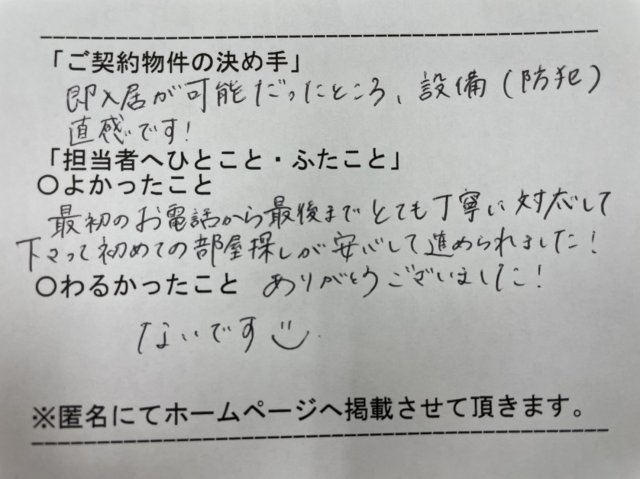 「ご契約物件の決め手」
即入居が可能だったところ、設備(防犯)
直感です!
「担当者へひとこと・ふたこと」
○よかったこと
最初のお電話から最後までとても丁寧に対応して
下さって初めての部屋探しが安心して進められました!
○わるかったこと ありがとうございました!
ないです
※匿名にてホームページへ掲載させて頂きます。